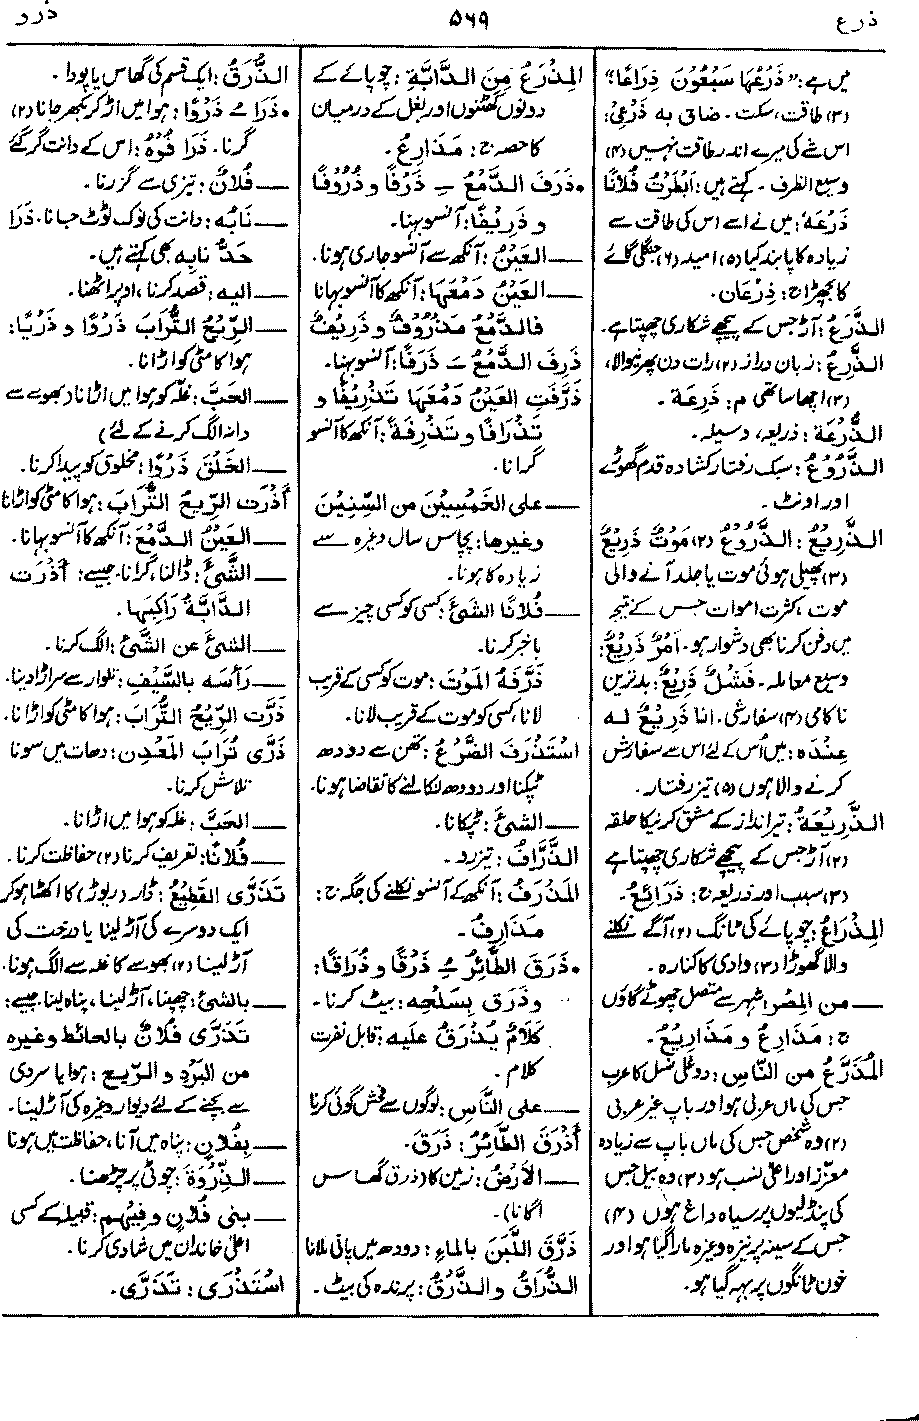 ذرع
۵۶۹
ذرو
میں ہے: ”ذَرْعُهَا سَبْعُوْنَ ذِرَاعًا“
(۳) طاقت، سکت۔ ضاق بہ ذَرْعِیْ:
اس شے کی میرے اندر طاقت نہیں (۴)
وسیع الظرف۔ کہتے ہیں: اَبْطَرْتُ فُلَانًا
ذَرْعَہٗ: میں نے اسے اس کی طاقت سے
زیادہ کا پابند کیا (۵) امید (۶) جنگلی گائے
کا بچھڑا ج: ذِرْعَان۔
الذَّرَعُ: آڑ جس کے پیچھے شکاری چھپتا ہے۔
الذَّرِعُ: زبان دراز (۲) رات دن پھرنیوالا،
(۳) اچھا ساتھی م: ذَرِعَة۔
الذُّرْعَة: ذریعہ، وسیلہ۔
الذَّرُوْعُ: سبک رفتار کشادہ قدم گھوڑے
اور اونٹ۔
الذَّرِيْعُ: الذَّرُوْعُ (۲) مَوْتٌ ذَرِيْعٌ
(۳) پھیلی ہوئی موت یا جلد آنے والی
موت، کثرت اموات جس کے نتیجہ
میں دفن کرنا بھی دشوار ہو۔ اَمْرٌ ذَرِيْعٌ:
وسیع معاملہ۔ فَشْلٌ ذَرِيْعٌ: بدترین
ناکامی (۴) سفارشی۔ انا ذَرِيْعٌ لہ
عِنْدَہ: میں اُس کے لئے اس سے سفارش
کرنے والا ہوں (۵) تیز رفتار۔
الذَّرِيْعَةُ: تیرانداز کے مشق کرنیکا حلقہ
(۲) آڑ جس کے پیچھے شکاری چھپتا ہے
(۳) سبب اور ذریعہ ج: ذَرَائِعُ۔
المِذْرَاعُ: چوپائے کی ٹانگ (۲) آگے نکلنے
والا گھوڑا (۳) وادی کا کنارہ۔
— من المِصْر: شہر سے متصل چھوٹے گاؤں
ج: مَذَارِعُ و مَذَارِيْعُ۔
المُذَرَّعُ من النَّاسِ: دوغلی نسل کا عرب
جس کی ماں عربی ہو اور باپ غیر عربی
(۲) وہ شخص جس کی ماں باپ سے زیادہ
معزز اور اعلیٰ نسب ہو (۳) وہ بیل جس
کی پنڈلیوں پر سیاہ داغ ہوں (۴)
جس کے سینہ پر نیزہ وغیرہ مارا گیا ہو اور
خون ٹانگوں پر بہہ گیا ہو۔
المِذْرَعُ مِنَ الدَّابَّةِ: چوپائے کے
دونوں گھٹنوں اور بغل کے درمیان
کا حصہ ج: مَذَارِعُ۔
• ذَرَفَ الدَّمْعُ ـِ ذَرْفًا و ذُرُوْفًا
و ذَرِيْفًا: آنسو بہنا۔
— العَيْنُ: آنکھ سے آنسو جاری ہونا۔
— العَيْنُ دَمْعَهَا: آنکھ کا آنسو بہانا
فالدَّمْعُ مَذْرُوْفٌ و ذَرِيْفٌ
ذَرِفَ الدَّمْعُ ـَ ذَرَفًا: آنسو بہنا۔
ذَرَّفَتِ العَيْنُ دَمْعَهَا تَذْرِيْفًا و
تَذْرَافًا و تَذْرِفَةً: آنکھ کا آنسو
گرانا۔
— على الخَمْسِيْنَ من السِّنِيْنَ
وغيرها: پچاس سال وغیرہ سے
زیادہ کا ہونا۔
— فُلَانًا الشَّیْءَ: کسی کو کسی چیز سے
باخبر کرنا۔
ذَرَّفَهُ المَوْتَ: موت کو کسی کے قریب
لانا، کسی کو موت کے قریب لانا۔
اسْتَذْرَفَ الضَّرْعُ: تھن سے دودھ
ٹپکنا اور دودھ نکالنے کا تقاضا ہونا۔
— الشیءَ: ٹپکانا۔
الذَّرَّافُ: تیزرو۔
المَذْرَفُ: آنکھ کے آنسو نکلنے کی جگہ ج:
مَذَارِفُ۔
• ذَرَقَ الطَّائِرُ ـُِ ذَرْقًا و ذُرَاقًا:
و ذَرَقَ بِسَلْحِهِ: بیٹ کرنا۔
كَلَامٌ يُذْرَقُ عليه: قابل نفرت
کلام۔
— على النَّاسِ: لوگوں سے فحش گوئی کرنا
أَذْرَقَ الطَّائِرُ: ذَرَقَ۔
— الأَرْضُ: زمین کا (ذرق گھاس
اگانا)۔
ذَرَّقَ اللَّبَنَ بالماءِ: دودھ میں پانی ملانا
الذُّرَاقُ و الذَّرْقُ: پرندہ کی بیٹ۔
الذُّرَقُ: ایک قسم کی گھاس یا پودا۔
• ذَرَا ـُ ذَرْوًا: ہوا میں اڑ کر بکھر جانا (۲)
گرنا۔ ذَرَا فُوْهُ: اس کے دانت گر گئے
— فُلَانٌ: تیزی سے گزرنا۔
— نَابُه: دانت کی نوک ٹوٹ جانا۔ ذَرَا
حَدُّ نابِه بھی کہتے ہیں۔
— اليه: قصد کرنا، اوپر اٹھنا۔
— الرِّيْحُ التُّرَابَ ذَرْوًا و ذَرْيًا:
ہوا کا مٹی کو اڑانا۔
— الحَبَّ: غلّہ کو ہوا میں اڑانا (بھوسے سے
دانہ الگ کرنے کے لئے)
— الخَلْقَ ذَرْوًا: مخلوق کو پیدا کرنا۔
أَذْرَتِ الرِّيْحُ التُّرَابَ: ہوا کا مٹی کو اڑانا
— العَيْنُ الدَّمْعَ: آنکھ کا آنسو بہانا۔
— الشَّیْءَ: ڈالنا، گرانا۔ جیسے: أَذْرَت
الدَّابَّةُ رَاكِبَهَا۔
— الشیءَ عن الشَّیْءِ: الگ کرنا۔
— رَأْسَه بالسَّيْفِ: تلوار سے سر اڑا دینا۔
ذَرَّتِ الرِّيْحُ التُّرَابَ: ہوا کا مٹی کو اڑانا۔
ذَرَّى تُرَابَ المَعْدِنِ: دھات میں سونا
تلاش کرنا۔
— الحَبَّ: غلہ کو ہوا میں اڑانا۔
— فُلَانًا: تعریف کرنا (۲) حفاظت کرنا۔
تَذَرَّى القَطِيْعُ: ڈار (ریوڑ) کا اکٹھا ہو کر
ایک دوسرے کی آڑ لینا یا درخت کی
آڑ لینا (۲) بھوسے کا غلہ سے الگ ہونا۔
— بالشیءِ: چھپنا، آڑ لینا، پناہ لینا، جیسے:
تَذَرَّى فُلَانٌ بالحائط وغیرہ
من البَرْدِ و الرِّيحِ: ہوا یا سردی
سے بچنے کے لئے دیوار وغیرہ کی آڑ لینا۔
— بِفُلَانٍ: پناہ میں آنا، حفاظت میں ہونا
— الذِّرْوَةَ: چوٹی پر چڑھنا۔
— بنى فُلَانٍ و فِيْهِم: قبیلے کے کسی
اعلیٰ خاندان میں شادی کرنا۔
اسْتَذْرَى: تَذَرَّى۔